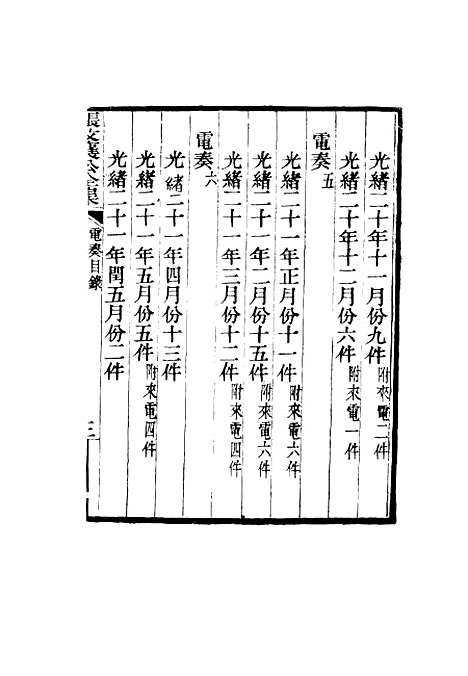 光緒二十年十一月份九件 附來電二件
光緒二十年十二月份六件 附來電一件
電奏五
光緒二十一年正月份十一件 附來電六件
光緒二十一年二月份十五件 附來電六件
光緒二十一年三月份十二件 附來電四件
電奏六
光緒二十一年四月份十三件
光緒二十一年五月份五件 附來電四件
光緒二十一年閏五月份二件
張文襄公全集 電奏目錄 三